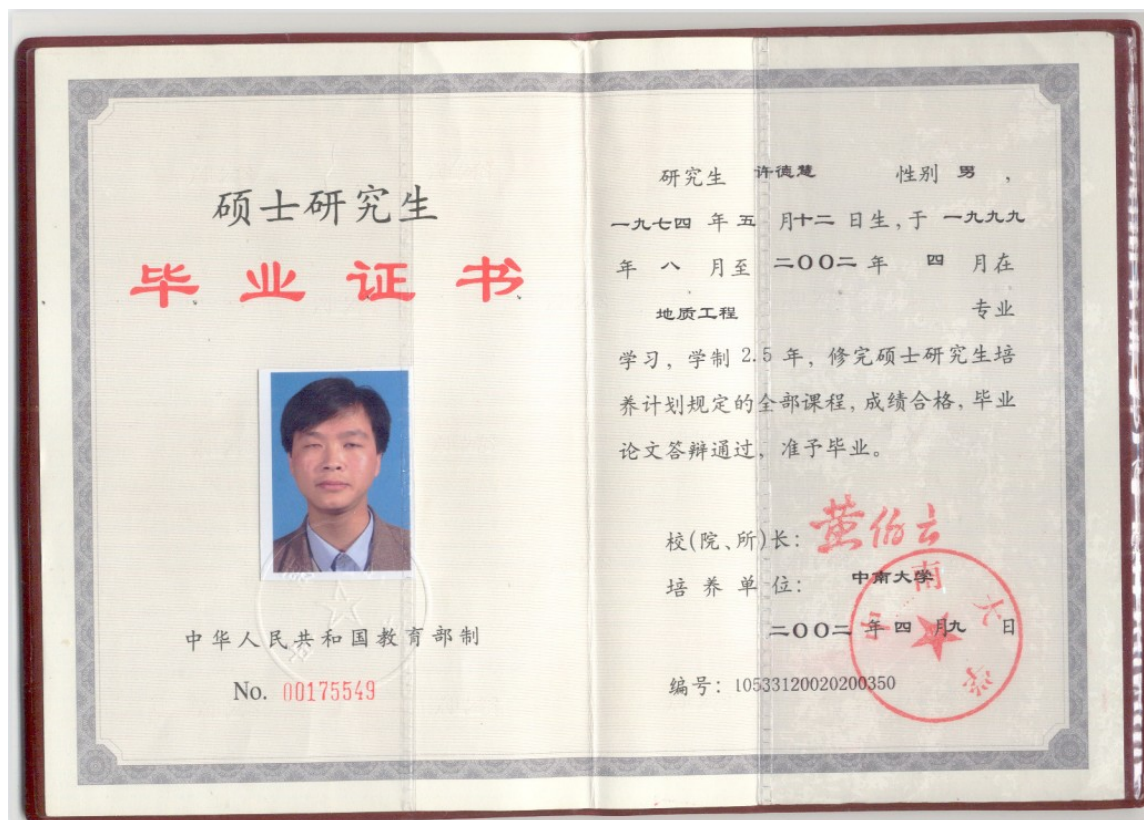 硕士研究生
毕业证书
中华人民共和国教育部制
No. 00175549
研究生 许德慧 性别 男 ，
一九七四 年 五 月十二 日生，于 一九九九
年 八 月至 二〇〇二 年 四 月在
地质工程 专业
学习，学制 2.5 年，修完硕士研究生培
养计划规定的全部课程，成绩合格，毕业
论文答辩通过，准予毕业。
校(院、所)长： 黄伯云
培 养 单 位： 中南大学
二〇〇二 年 四 月九 日
编号：10533120020200350
中南大学